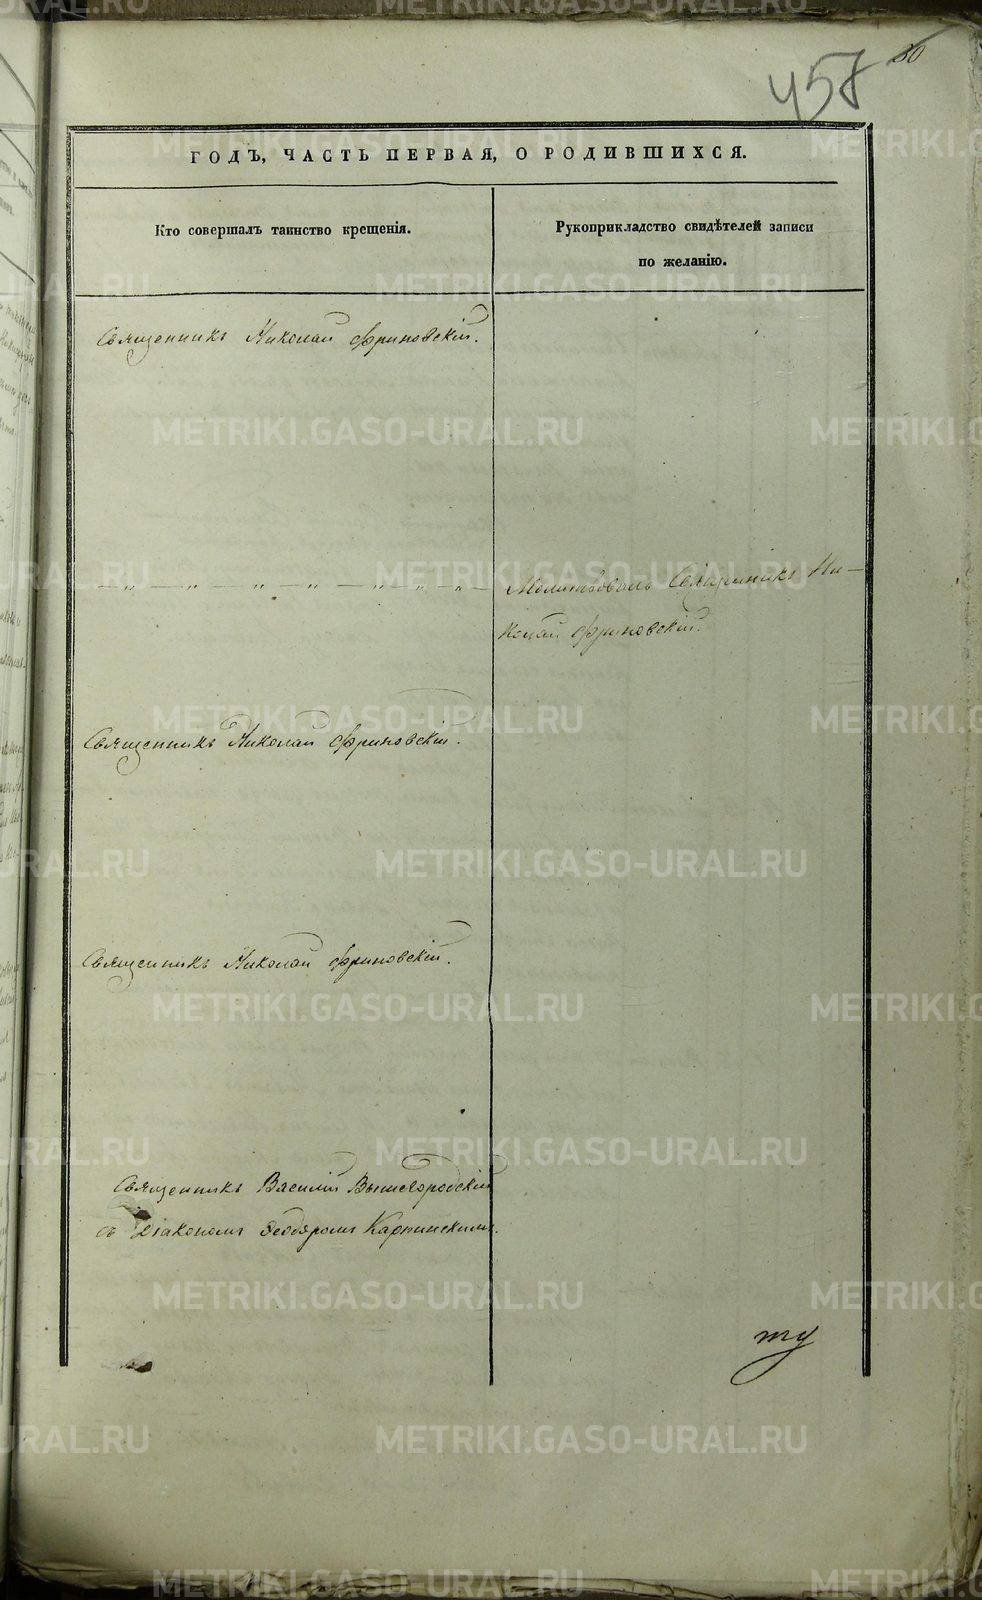 80
457
ГОДЪ, ЧАСТЬ ПЕРВАЯ, О РОДИВШИХСЯ.
Кто совершалъ таинство крещенія.
Рукоприкладство свидѣтелей записи
по желанію.
Священникъ Николай Фриновскій.
— „ — „ — „ — „ — „ — „ — „ —
Молитвовалъ Священникъ Ни-
колай Фриновскій.
Священникъ Николай Фриновскій.
Священникъ Николай Фриновскій.
Священникъ Василій Вышегородскій
съ Діакономъ Феодоромъ Карпинскимъ.
ту
METRIKI.GASO-URAL.RU